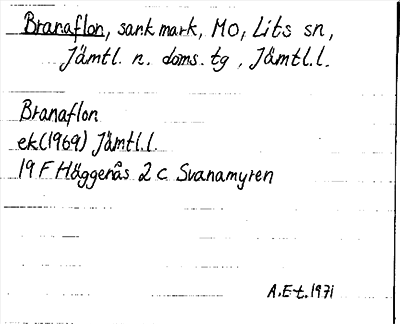 Branaflon, sank mark, MO, Lits sn,
Jämtl. n. doms. tg, Jämtl.l.
Branaflon
ek(1969) Jämtl.l.
19 F Häggenås 2 c Svanamyren
A.E-t.1971